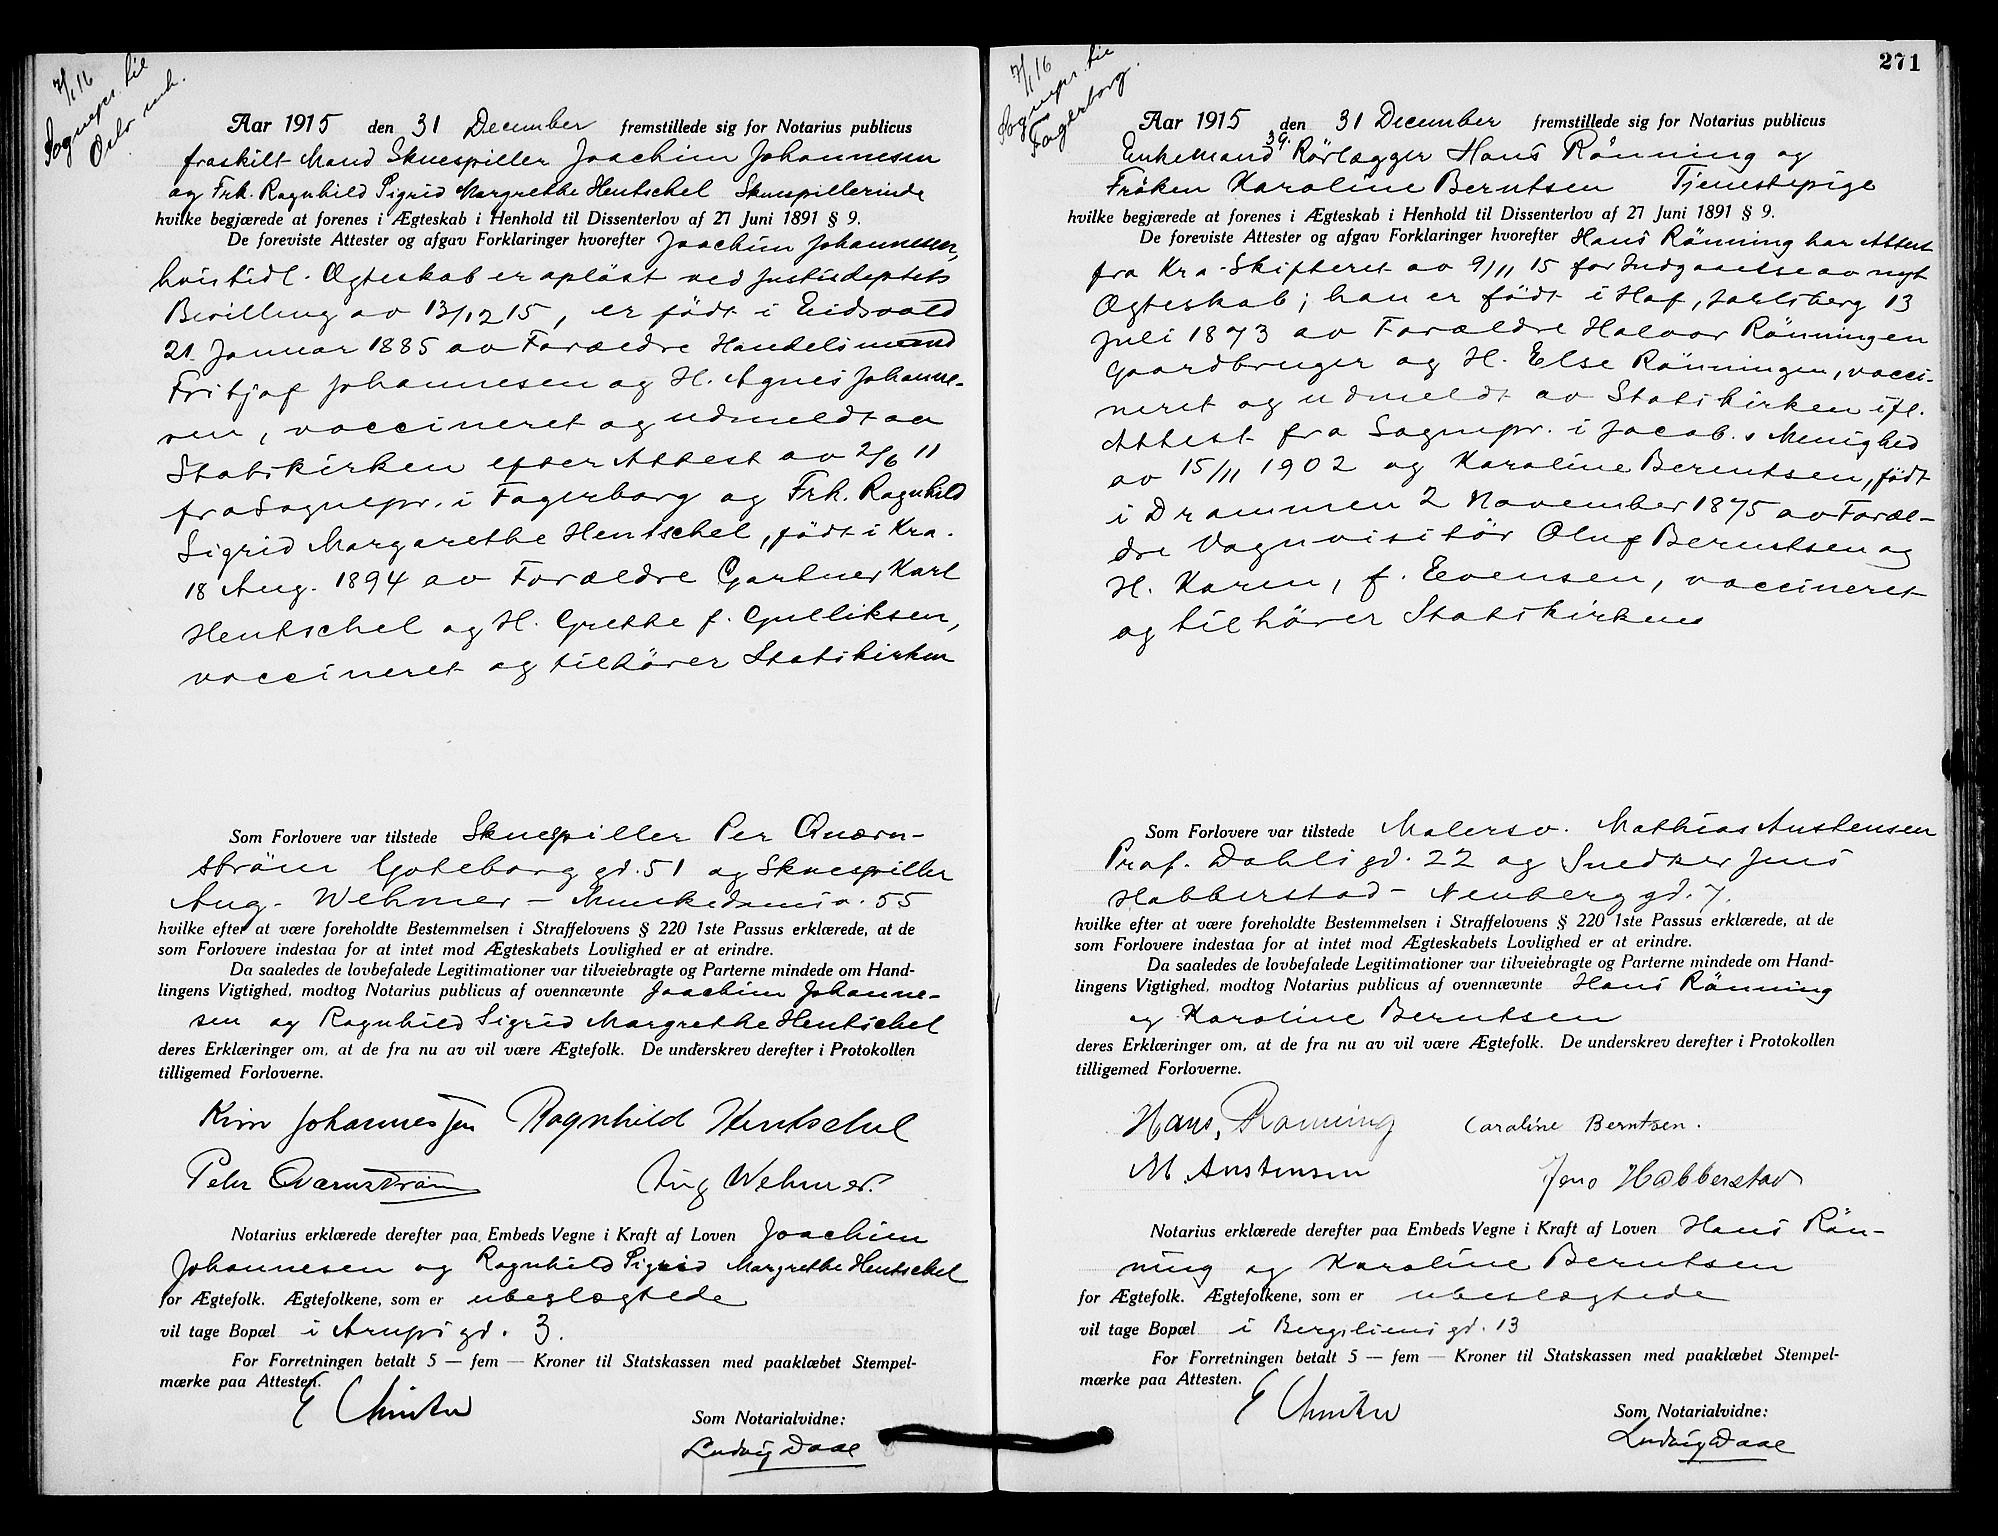 7/1 16
Sognepr. til
Oslo mh.
Aar 1915 den 31 December fremstillede sig for Notarius publicus
fraskilt Mand Skuespiller Joachim Johannesen
og Frk. Ragnhild Sigrid Margrethe Hentschel Skuespillerinde
hvilke begjærede at forenes i Ægteskab i Henhold til Dissenterlov af 27 Juni 1891 § 9.
De foreviste Attester og afgav Forklaringer hvorefter Joachim Johannesen,
hvis tidl. Ægteskab er opløst ved Justisdeptets
Bevilling av 13/12 15, er født i Eidsvold
21. Januar 1885 av Forældre Handelsmand
Fritjof Johannesen og H. Agnes Johanne-
sen, vaccineret og udmeldt av
Statskirken efter Attest av 2/6 11
fra Sognepr. i Fagerborg og Frk. Ragnhild
Sigrid Margarethe Hentschel, født i Kra.
18 Aug. 1894 av Forældre Gartner Karl
Hentschel og H. Grethe f. Gulliksen,
vaccineret og tilhører Statskirken
Som Forlovere var tilstede Skuespiller Per Qværn-
strøm Gøteborg gd. 51 og Skuespiller
Aug. Wehmer – Munkedamsv. 55
hvilke efter at være foreholdte Bestemmelsen i Straffelovens § 220 1ste Passus erklærede, at de
som Forlovere indestaa for at intet mod Ægteskabets Lovlighed er at erindre.
Da saaledes de lovbefalede Legitimationer var tilveiebragte og Parterne mindede om Hand-
lingens Vigtighed, modtog Notarius publicus af ovennævnte Joachim Johanne-
sen og Ragnhild Sigrid Margrethe Hentschel
deres Erklæringer om, at de fra nu av vil være Ægtefolk. De underskrev derefter i Protokollen
tilligemed Forloverne.
Kim Johannessen Ragnhild Hentschel
Pehr Qværnstrøm Aug Wehmer.
Notarius erklærede derefter paa Embeds Vegne i Kraft af Loven Joachim
Johannesen og Ragnhild Sigrid Margrethe Hentschel
for Ægtefolk. Ægtefolkene, som er ubeslægtede
vil tage Bopæl i Arupsgd. 3.
For Forretningen betalt 5 — fem — Kroner til Statskassen med paaklæbet Stempel-
mærke paa Attesten.
Som Notarialvidne:
Ludvig Daae
271
7/1 16
Sognepr. til
Fagerborg.
Aar 1915 den 31 December fremstillede sig for Notarius publicus
Enkemand 3 g. Rørlægger Hans Rønning og
Frøken Karoline Berntsen Tjenestepige
hvilke begjærede at forenes i Ægteskab i Henhold til Dissenterlov af 27 Juni 1891 § 9.
De foreviste Attester og afgav Forklaringer hvorefter Hans Rønning har Attest
fra Kra. Skifteret av 9/11 15 for Indgaaelse av nyt
Ægteskab; han er født i Hof, Jarlsberg 13
Juli 1873 av Forældre Halvor Rønningen
Gaardbruger og H. Else Rønningen, vacci-
neret og udmeldt av Statskirken ifl.
Attest fra Sognepr. i Jacob.s Menighed
av 15/11 1902 og Karoline Berntsen, født
i Drammen 2 November 1875 av Foræl-
dre Vognvisitør Oluf Berntsen og
H. Karen, f. Evensen, vaccineret
og tilhører Statskirken
Som Forlovere var tilstede Malersv. Mathias Austensen
Prof. Dahls gd. 22 og Snedker Jens
Habberstad – Neuberg gd. 7.
hvilke efter at være foreholdte Bestemmelsen i Straffelovens § 220 1ste Passus erklærede, at de
som Forlovere indestaa for at intet mod Ægteskabets Lovlighed er at erindre.
Da saaledes de lovbefalede Legitimationer var tilveiebragte og Parterne mindede om Hand-
lingens Vigtighed, modtog Notarius publicus af ovennævnte Hans Rønning
og Karoline Berntsen
deres Erklæringer om, at de fra nu av vil være Ægtefolk. De underskrev derefter i Protokollen
tilligemed Forloverne.
Hans, Rønning Caroline Berntsen.
M. Austensen Jens Habberstad
Notarius erklærede derefter paa Embeds Vegne i Kraft af Loven Hans Røn-
ning og Karoline Berntsen
for Ægtefolk. Ægtefolkene, som er ubeslægtede
vil tage Bopæl i Bergsliens gd. 13
For Forretningen betalt 5 — fem — Kroner til Statskassen med paaklæbet Stempel-
mærke paa Attesten.
Som Notarialvidne:
Ludvig Daae